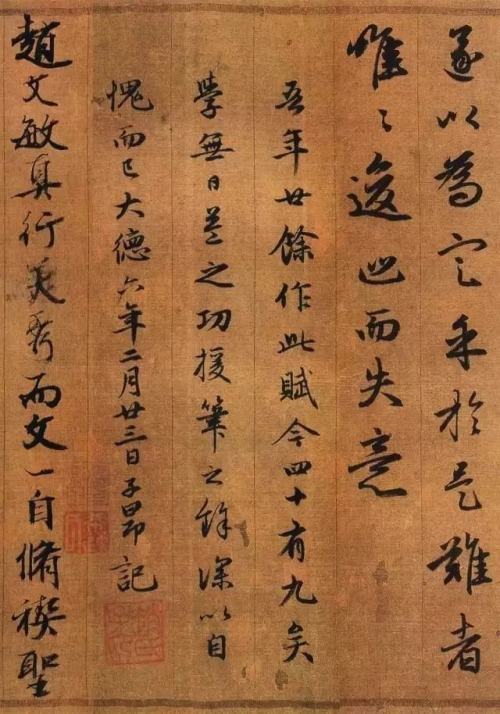 遂以為定乎於是難者
唯〻逡巡而失意
吾年廿餘作此賦今四十有九矣
學無日益之功援筆之餘深以自
愧而已大德六年二月廿三日子昂記
趙文敏真行美秀而文一自脩禊聖